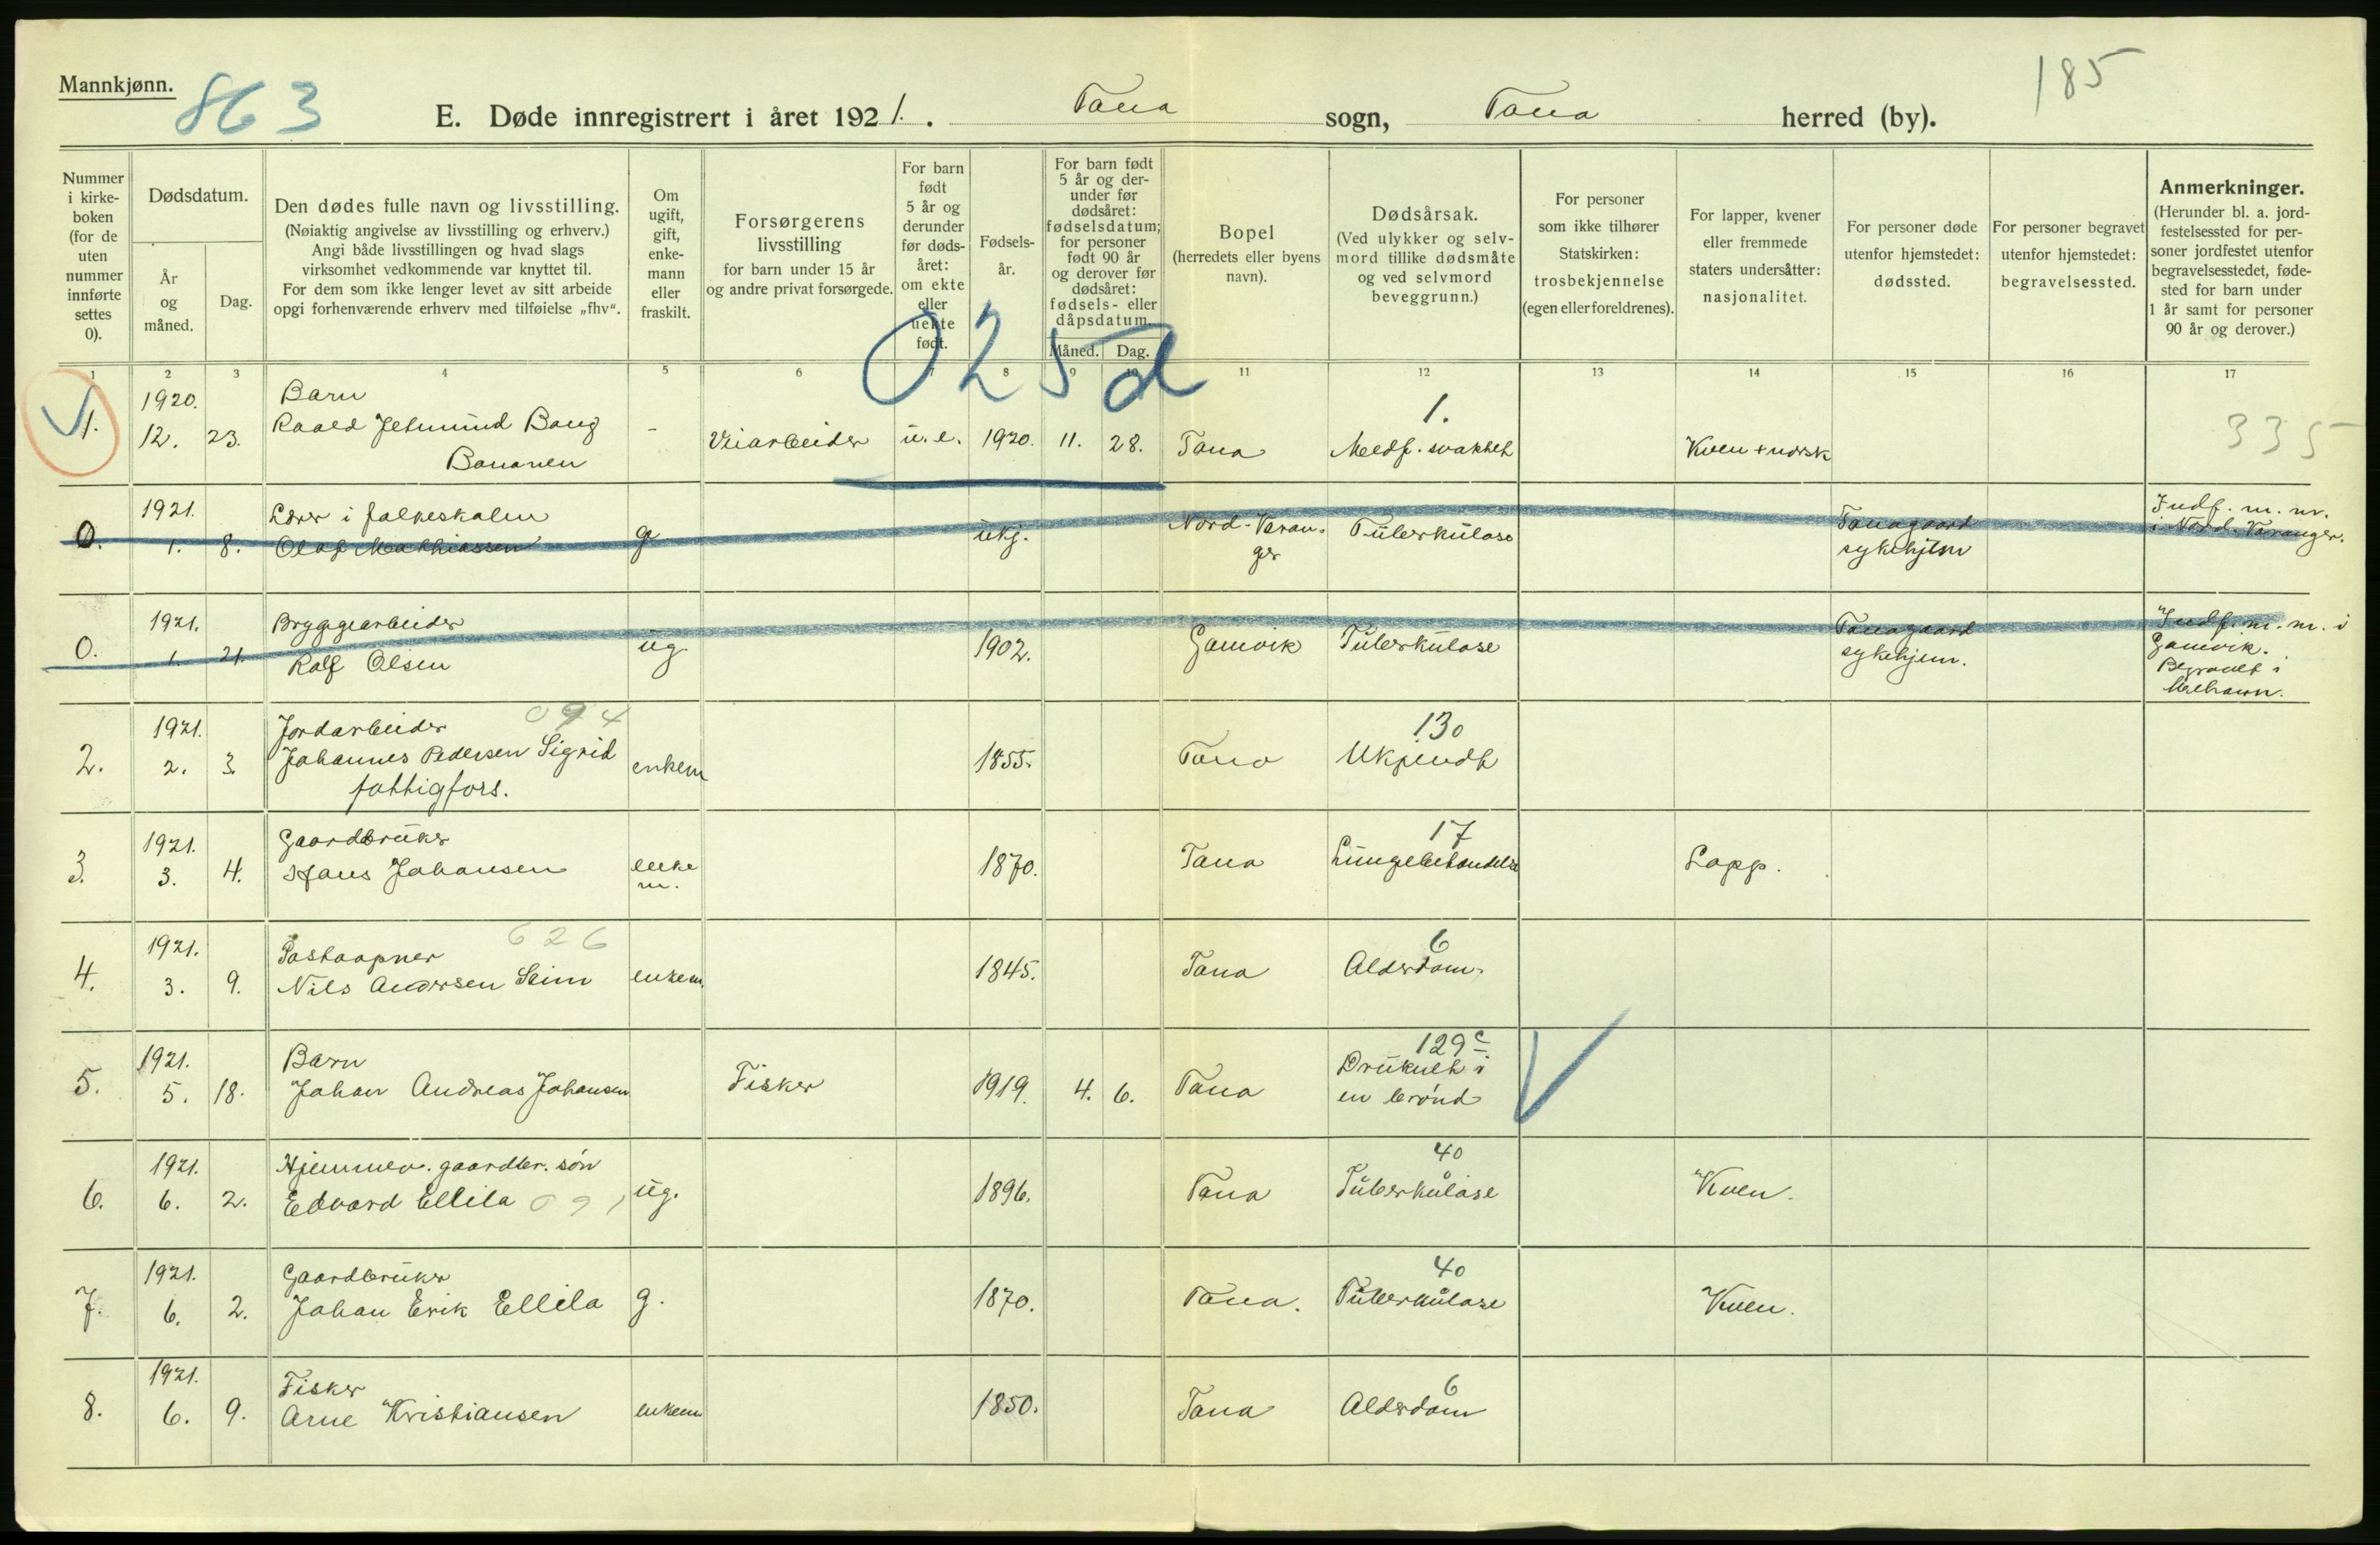 Mannkjønn.
863
185
E. Døde innregistrert i året 1921. Tana sogn, Tana herred (by).
Nummer i kirkeboken (for de uten nummer innførte settes 0).
Dødsdatum.
År og måned.
Dag.
Den dødes fulle navn og livsstilling.
(Nøiaktig angivelse av livsstilling og erhverv.)
Angi både livsstillingen og hvad slags
virksomhet vedkommende var knyttet til.
For dem som ikke lenger levet av sitt arbeide
opgi forhenværende erhverv med tilføielse „fhv“.
Om ugift, gift, enkemann eller fraskilt.
Forsørgerens livsstilling
for barn under 15 år
og andre privat forsørgede.
For barn født 5 år og derunder før dødsåret: om ekte eller uekte født.
Fødselsår.
For barn født 5 år og derunder før dødsåret: fødselsdatum; for personer født 90 år og derover før dødsåret: fødsels- eller dåpsdatum
Måned. Dag.
Bopel
(herredets eller byens navn).
Dødsårsak.
(Ved ulykker og selvmord tillike dødsmåte og ved selvmord beveggrunn.)
For personer som ikke tilhører Statskirken: trosbekjennelse (egen eller foreldrenes).
For lapper, kvener eller fremmede staters undersåtter: nasjonalitet.
For personer døde utenfor hjemstedet: dødssted.
For personer begravet utenfor hjemstedet: begravelsessted.
Anmerkninger.
(Herunder bl. a. jordfestelsessted for personer jordfestet utenfor begravelsesstedet, fødested for barn under 1 år samt for personer 90 år og derover.)
025 d
1 2 3 4 5 6 7 8 9 10 11 12 13 14 15 16 17
1. 1920. 12. 23. Barn
Bang
- u.e. 1920. 11. 28. Tana 1. Medf. svakhet Kven + norsk 335
0. 1921. 1. 8. Lærer i folkeskolen
Olaf Mathiassen g ukj. Nord-Varanger Tuberkulose Tanagaard sykehjem Indf. m. nr. i Nord-Varanger.
0. 1921. 1. 21. Bryggearbeider
Rolf Olsen ug. 1902. Gamvik Tuberkulose Tanagaard sykehjem. Indf. m. nr. i Gamvik. Begravet i Mehavn.
2. 1921. 2. 3. Jordarbeider 094
Johannes Pedersen Sigrid enkem 1855. Tana 130 Ukjendt
fattigfors.
3. 1921. 3. 4. Gaardbruker
Hans Johansen enkem. 1870. Tana 17 Lungebetændelse Lapp.
4. 1921. 3. 9. Postaapner 626
Nils Andersen Seim enkem. 1845. Tana 6 Alderdom.
5. 1921. 5. 18. Barn
Johan Andreas Johansen Fisker 1919. 4. 6. Tana 129c Druknet i en brønd
6. 1921. 6. 2. Hjemmev. gaardbr. søn
Edvard Ellila 091 ug. 1896. Tana 40 Tuberkulose Kven.
7. 1921. 6. 2. Gaardbruker
Johan Erik Ellila g. 1870. Tana. 40 Tuberkulose Kven.
8. 1921. 6. 9. Fisker
Arne Kristiansen enkem 1850. Tana 6 Alderdom